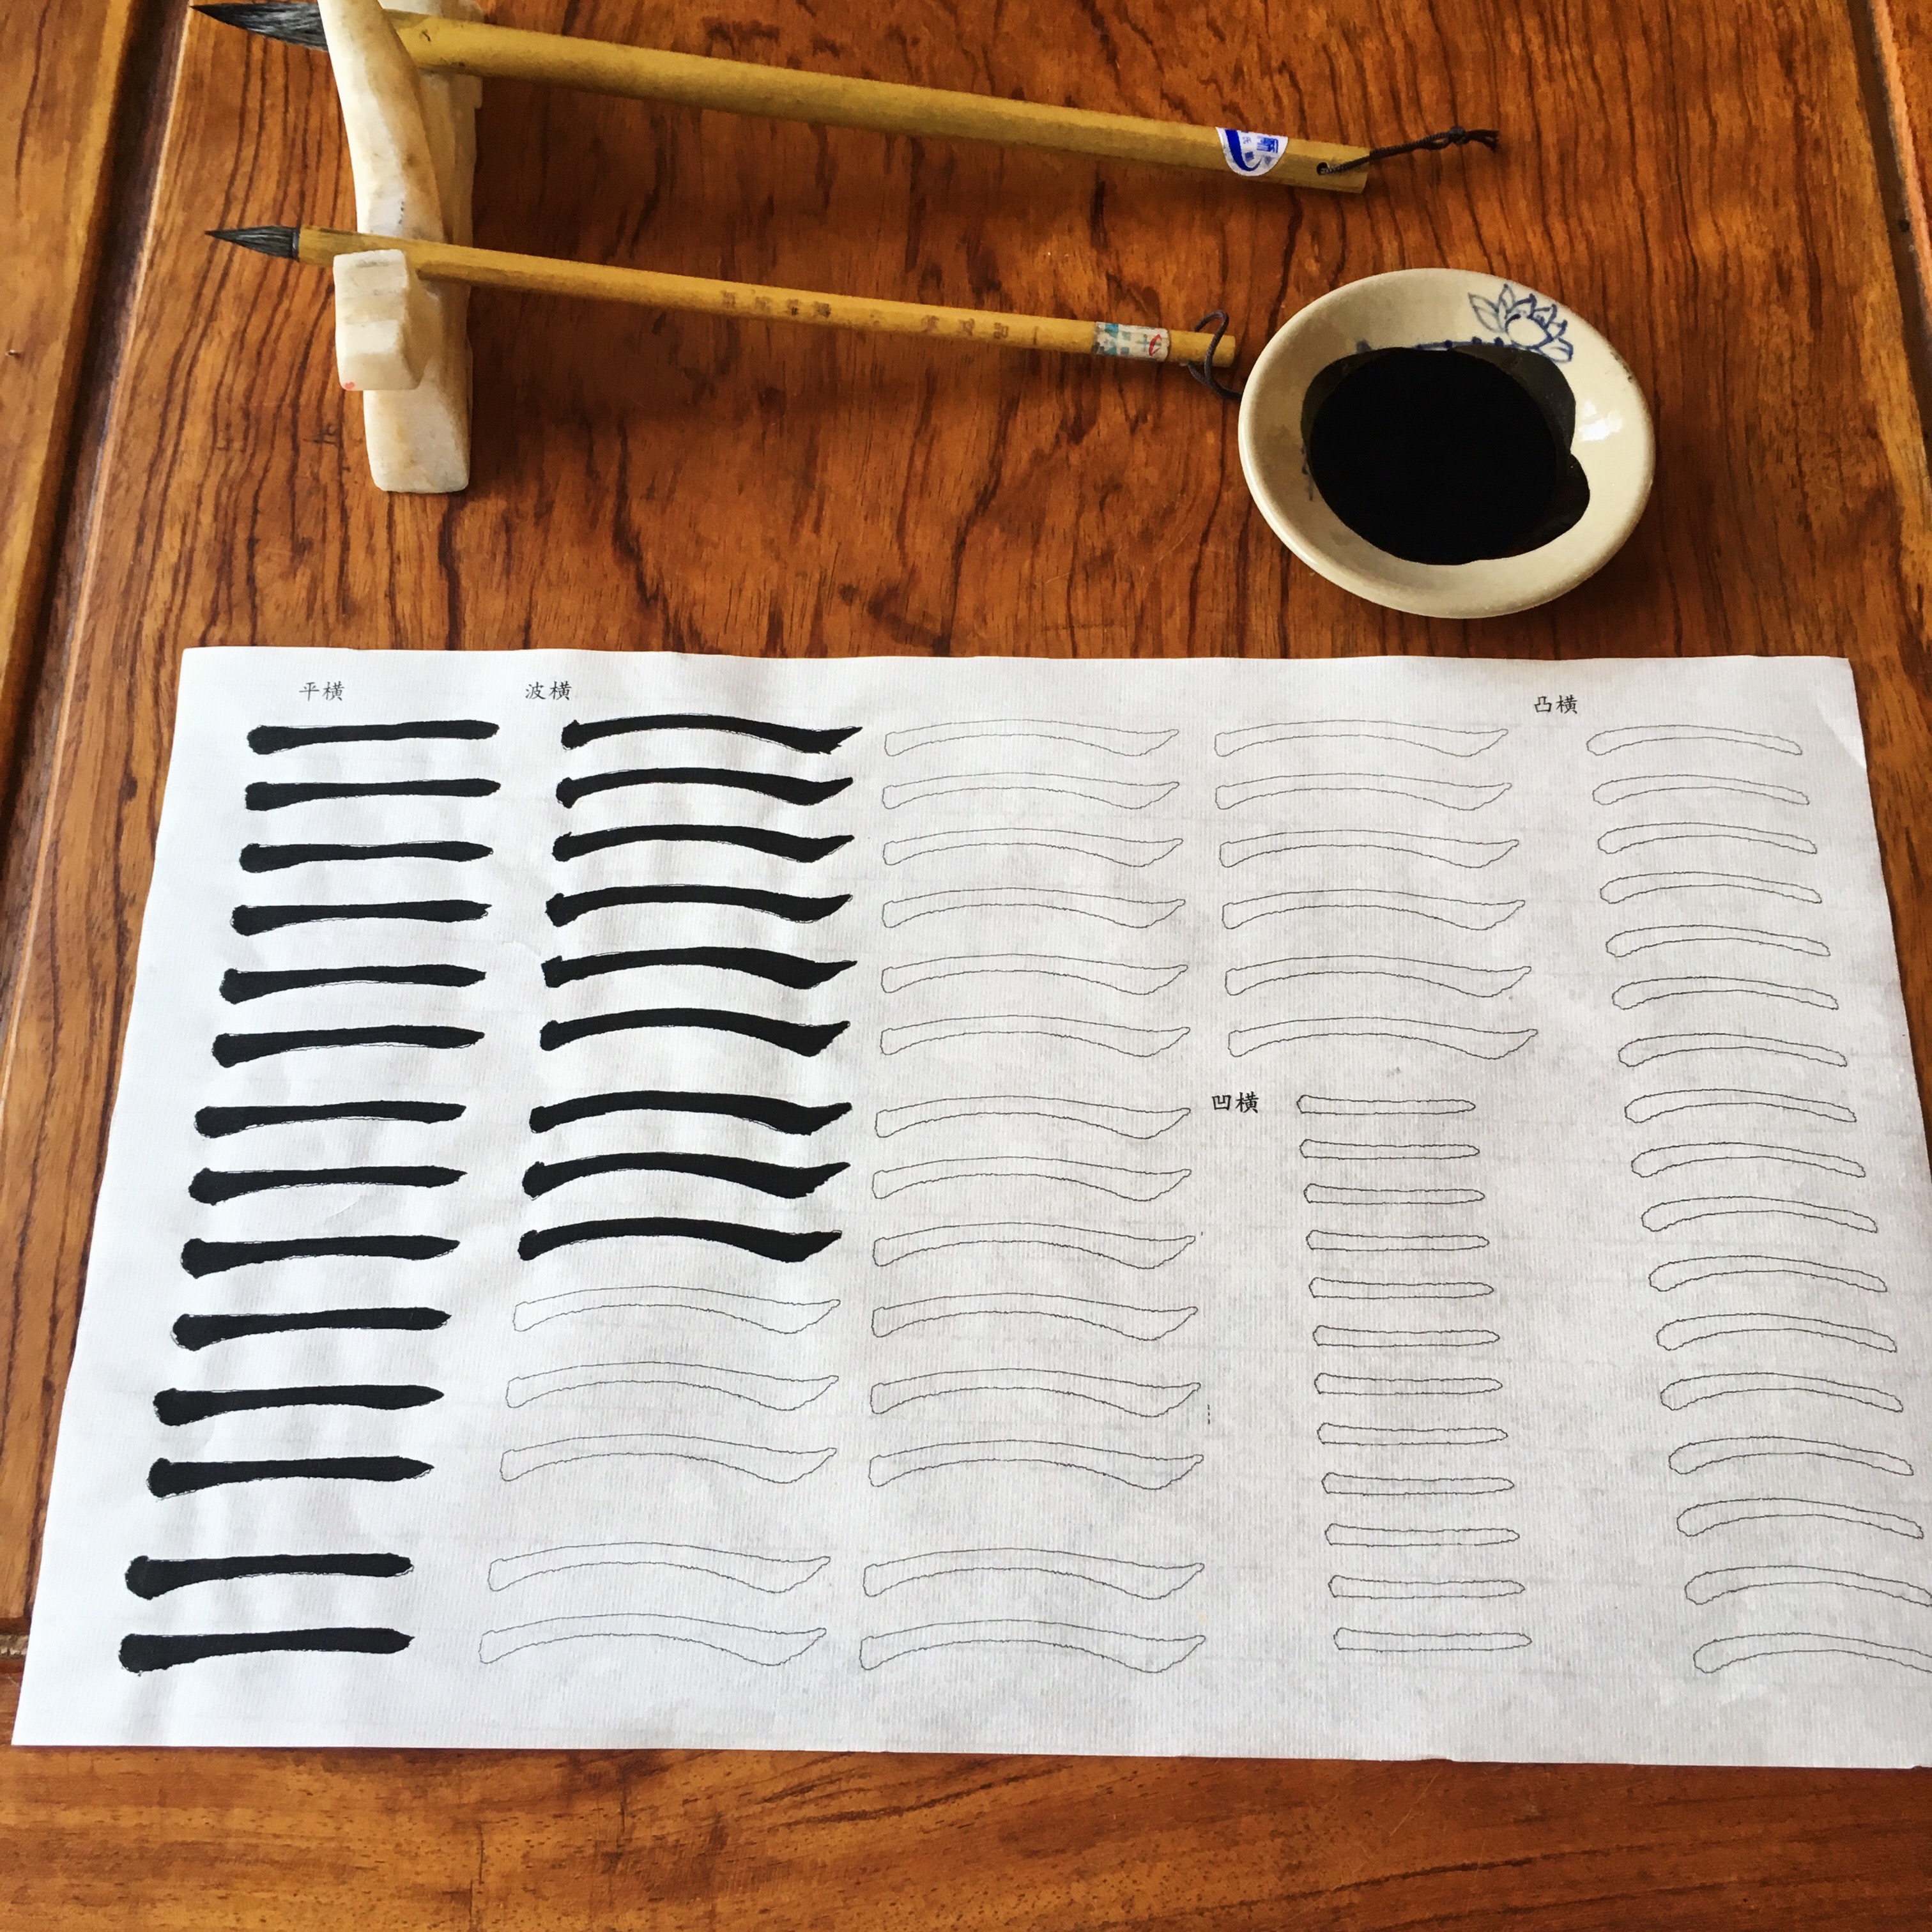 平横
波横
凸横
凹横